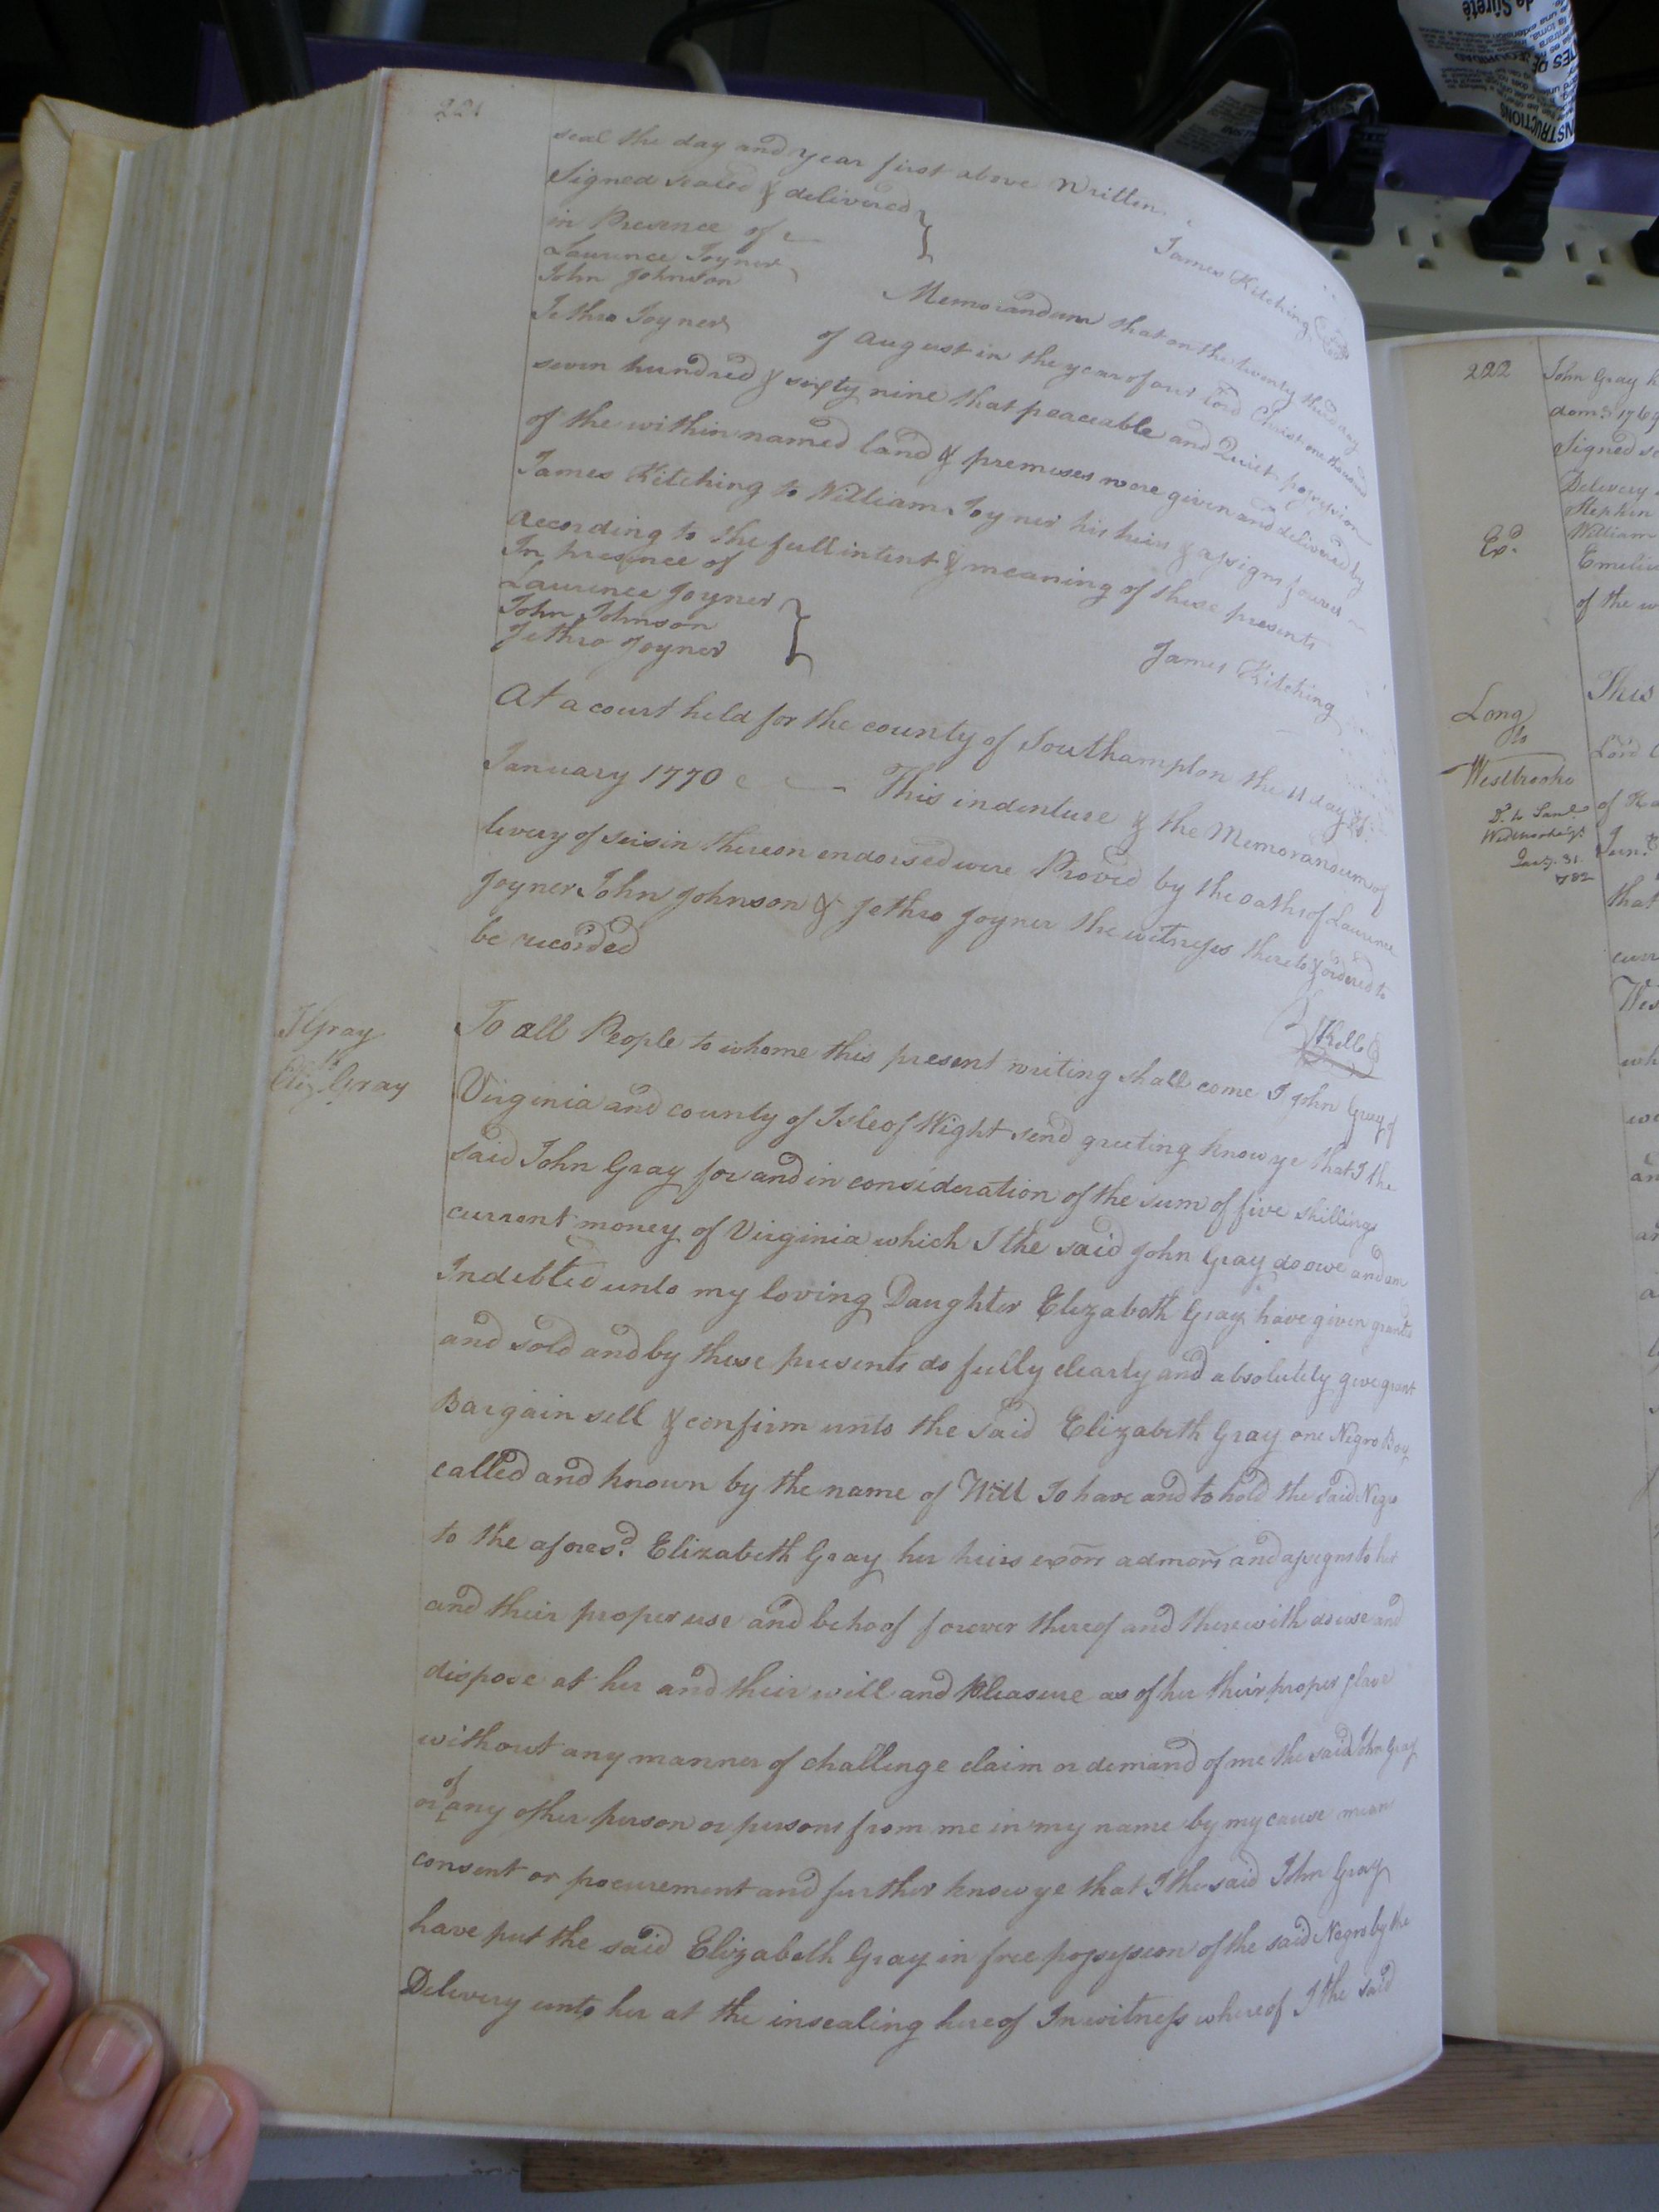 221
seal the day and year first above Written
Signed sealed & delivered
in Presence of
Laurence Joyner
John Johnson
Jethro Joyner
James Kitching
Memorandum that on the twenty third day
of August in the year of our Lord Christ one thousand
seven hundred & sixty nine that peaceable and Quiet possession
of the within named land & premises were given and delivered by
James Kitching to William Joyner his heirs & assigns forever
according to the full intent & meaning of these presents
In presence of
Laurence Joyner
John Johnson
Jethro Joyner
James Kitching
At a court held for the county of Southampton the 11 day of
January 1770 This indenture & the Memorandum of
livery of seisin thereon endorsed were Proved by the oaths of Laurence
Joyner John Johnson & Jethro Joyner the witnesses thereto & ordered to
be recorded
J Gray
to
Eliz. Gray
To all People to whome this present writing shall come I John Gray of
Virginia and county of Isle of Wight send greeting know ye that I the
said John Gray for and in consideration of the sum of five shillings
current money of Virginia which I the said John Gray do owe and am
Indebted unto my loving Daughter Elizabeth Gray have given granted
and sold and by these presents do fully clearly and absolutely give grant
Bargain sell & confirm unto the said Elizabeth Gray one Negro Boy
called and known by the name of Will To have and to hold the said Negro
to the afores.d Elizabeth Gray her heirs exors admors and assigns to her
and their proper use and behoof forever thereof and therewith do use and
dispose at her and their will and Pleasure as of her their proper slave
without any manner of challenge claim or demand of me the said John Gray
or of any other person or persons from me in my name by my cause mean
consent or procurement and further know ye that I the said John Gray
have put the said Elizabeth Gray in free possession of the said Negro by the
Delivery unto her at the insealing hereof In witness whereof I the said
222
John Gray h
dom: 1769
Signed se
Delivery
Stephen
William
Ex.d
Emelia
of the w
Long
to
Westbrooke
D. to Saml.
Jany. 31.
1782
This
Lord
of
Jun.
that
curr
Wes
wh